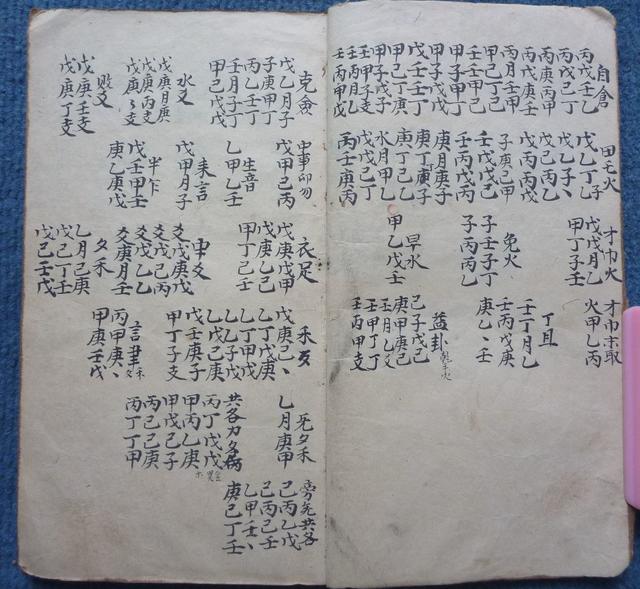 自倉
丙戊壬乙
丙戊己丁
丙庚丙甲
丙戊庚壬
丙月壬甲
甲己丁己
壬壬甲己
甲子丙丁
甲子戊戊
戊壬甲子
甲己丁庚
甲子戊子
壬甲子支
壬丙甲戊
田毛火
戊乙丁子
戊乙子、
戊己丙乙
戊丙丙戊
子庚己甲
壬戊戊己
壬丙丙戊
庚月庚子
庚丁己乙
水月甲乙
戊戊己丁
丙壬庚丙
才巾火
戊戊月乙
甲丁子壬
免火
子壬子丁
子丙丙乙
旱水
甲乙戊壬
才巾末取
火甲乙丙
丁且
壬丁月乙
壬丙戊庚
庚乙、壬
益卦
己子戊己
庚甲庚己
壬月乙爻
壬甲丁丁
壬丙甲支
克僉
戊乙月子
丙子甲丁
子庚壬丁
壬月子丁
甲己戊戊
水爻
戊庚月庚
戊庚丙支
戊庚丁支
敗爻
戊庚壬支
戊庚丁支
中事卯勿
戊甲己丙
生音
乙甲乙壬
耒言
戊甲月子
半乍
戊壬甲壬
庚乙庚戊
衣足
戊庚戊甲
戊庚乙己
甲丁己壬
申爻
爻戊庚戊
爻戊己丙
爻戊乙乙
爻庚月壬
夕禾
乙月己庚
戊己丁壬
戊己壬戊
禾歹
戊庚己、
乙丁戊庚
乙乙子戊
乙戊己庚
戊壬庚子
甲丁子支
言聿
丙甲庚、
甲庚壬戊
死夕禾
乙月庚甲
共各力多病
丙丁戊戊
甲丙乙庚
甲戊己子
丙己己庚
丙丁丁甲
旁死共各
己丙乙戊
己丙己壬
乙甲壬、
庚己丁壬